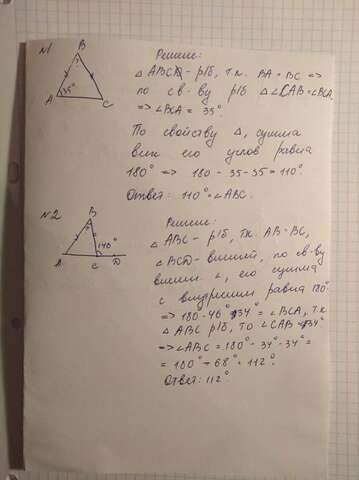 №1
B
?
A
35°
C
Решение:
△ ABC - р/б, т.к. BA = BC =>
по св-ву р/б △ ∠CAB = ∠BCA
=> ∠BCA = 35°.
По свойству △, сумма
всех его углов равна
180° => 180 - 35 - 35 = 110°.
Ответ: 110° = ∠ABC.
№2
B
?
146°
A
C
D
Решение:
△ ABC - р/б, т.к. AB = BC,
∠BCD - внешний, по св-ву
внешн. ∠, его сумма
с внутренним равна 180°
=> 180 - 146° = 34° = ∠BCA, т.к.
△ ABC р/б, то ∠CAB = 34°
=> ∠ABC = 180° - 34° - 34° =
= 180° - 68° = 112°.
Ответ: 112°.